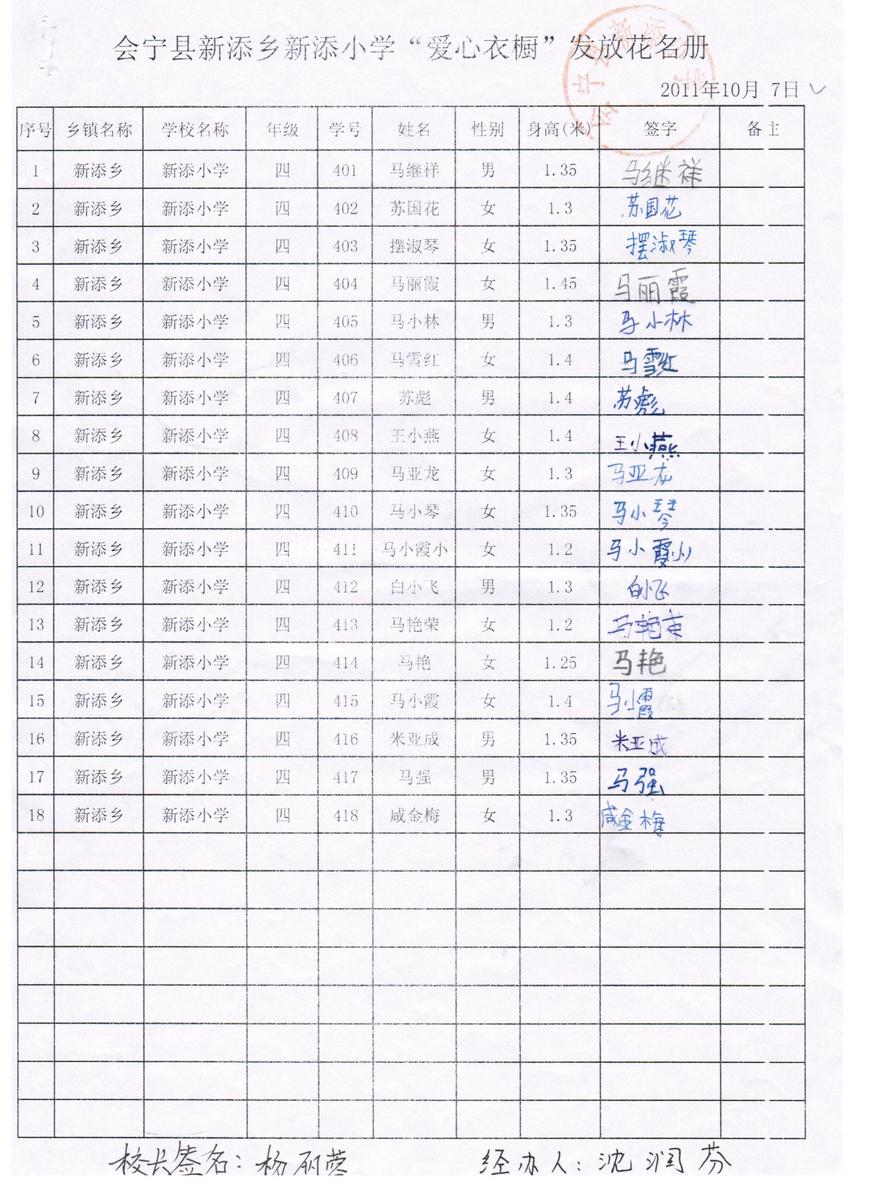 会宁县新添乡新添小学“爱心衣橱”发放花名册
2011年10月 7日
序号 乡镇名称 学校名称 年级 学号 姓名 性别 身高(米) 签字 备注
1 新添乡 新添小学 四 401 马继祥 男 1.35 马继祥
2 新添乡 新添小学 四 402 苏国花 女 1.3 苏国花
3 新添乡 新添小学 四 403 摆淑琴 女 1.35 摆淑琴
4 新添乡 新添小学 四 404 马丽霞 女 1.45 马丽霞
5 新添乡 新添小学 四 405 马小林 男 1.3 马小林
6 新添乡 新添小学 四 406 马雪红 女 1.4 马雪红
7 新添乡 新添小学 四 407 苏彪 男 1.4 苏彪
8 新添乡 新添小学 四 408 王小燕 女 1.4 王小燕
9 新添乡 新添小学 四 409 马亚龙 女 1.3 马亚龙
10 新添乡 新添小学 四 410 马小琴 女 1.35 马小琴
11 新添乡 新添小学 四 411 马小霞小 女 1.2 马小霞小
12 新添乡 新添小学 四 412 白小飞 男 1.3 白小飞
13 新添乡 新添小学 四 413 马艳荣 女 1.2 马艳荣
14 新添乡 新添小学 四 414 马艳 女 1.25 马艳
15 新添乡 新添小学 四 415 马小霞 女 1.4 马小霞
16 新添乡 新添小学 四 416 米亚成 男 1.35 米亚成
17 新添乡 新添小学 四 417 马强 男 1.35 马强
18 新添乡 新添小学 四 418 咸金梅 女 1.3 咸金梅
校长签名: 杨 经办人: 沈润芬